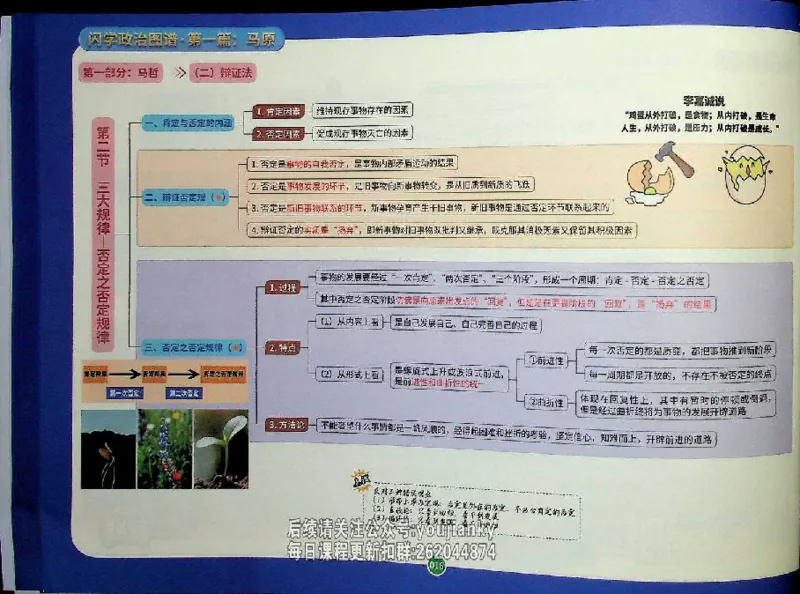 闪学政治图谱·第一篇：马原
第一部分：马哲 >> （二）辩证法
李嘉诚说
"鸡蛋从外打破，是食物；从内打破，是生命
人生，从外打破，是压力；从内打破是成长。"
第二节 三大规律—否定之否定规律
一、肯定与否定的内涵
1. 肯定因素
维持现存事物存在的因素
2. 否定因素
促成现存事物灭亡的因素
二、辩证否定观（★）
1. 否定是事物的自我否定，是事物内部矛盾运动的结果
2. 否定是事物发展的环节，是旧事物向新事物转变，是从旧质到新质的飞跃
3. 否定是新旧事物联系的环节，新事物孕育产生于旧事物，新旧事物是通过否定环节联系起来的
4. 辩证否定的实质是"扬弃"，即新事物对旧事物既批判又继承，既克服其消极因素又保留其积极因素
三、否定之否定规律（★）
1. 过程
事物的发展要经过"一次肯定"、"两次否定"、"三个阶段"，形成一个周期：肯定-否定-否定之否定
其中否定之否定阶段仿佛是向原来出发点的"回复"，但是是在更高阶段的"回复"，是"扬弃"的结果
2. 特点
（1）从内容上看
是自己发展自己、自己完善自己的过程
（2）从形式上看
是螺旋式上升或波浪式前进，
是前进性和曲折性的统一
①前进性
每一次否定的都是质变，都把事物推到新阶段
每一周期都是开放的，不存在不被否定的终点
②曲折性
体现在回复性上，其中有暂时的停顿或倒退，
但是经过曲折终将为事物的发展开辟道路
3. 方法论
不能奢望什么事情都是一帆风顺的，经得起困难和挫折的考验，坚定信心，知难而上，开辟前进的道路
第一次否定
第二次否定
否定之否定阶段
后续请关注公众号:youjianky
每日课程更新扣群:262044874
016